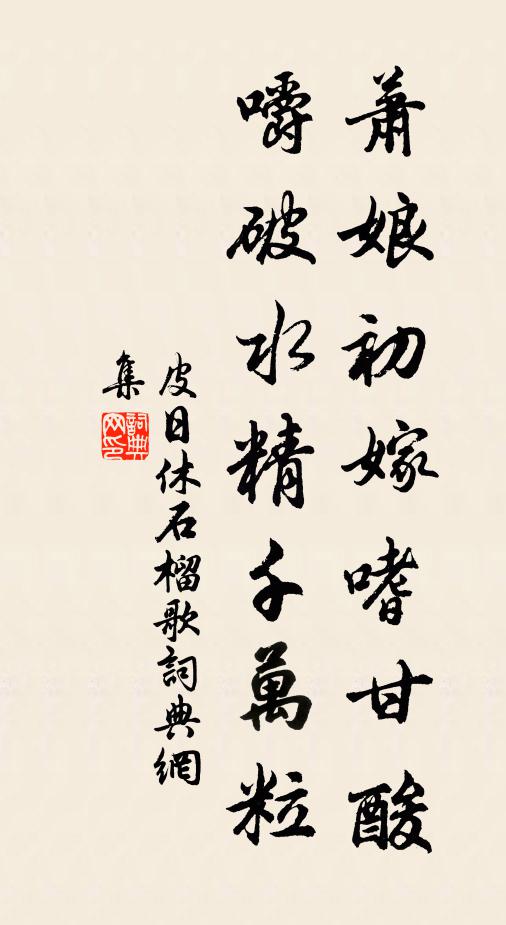 蕭娘初嫁嗜甘酸
嚼破水精千萬粒
皮日休石榴歌詞典網
集
詞典網印